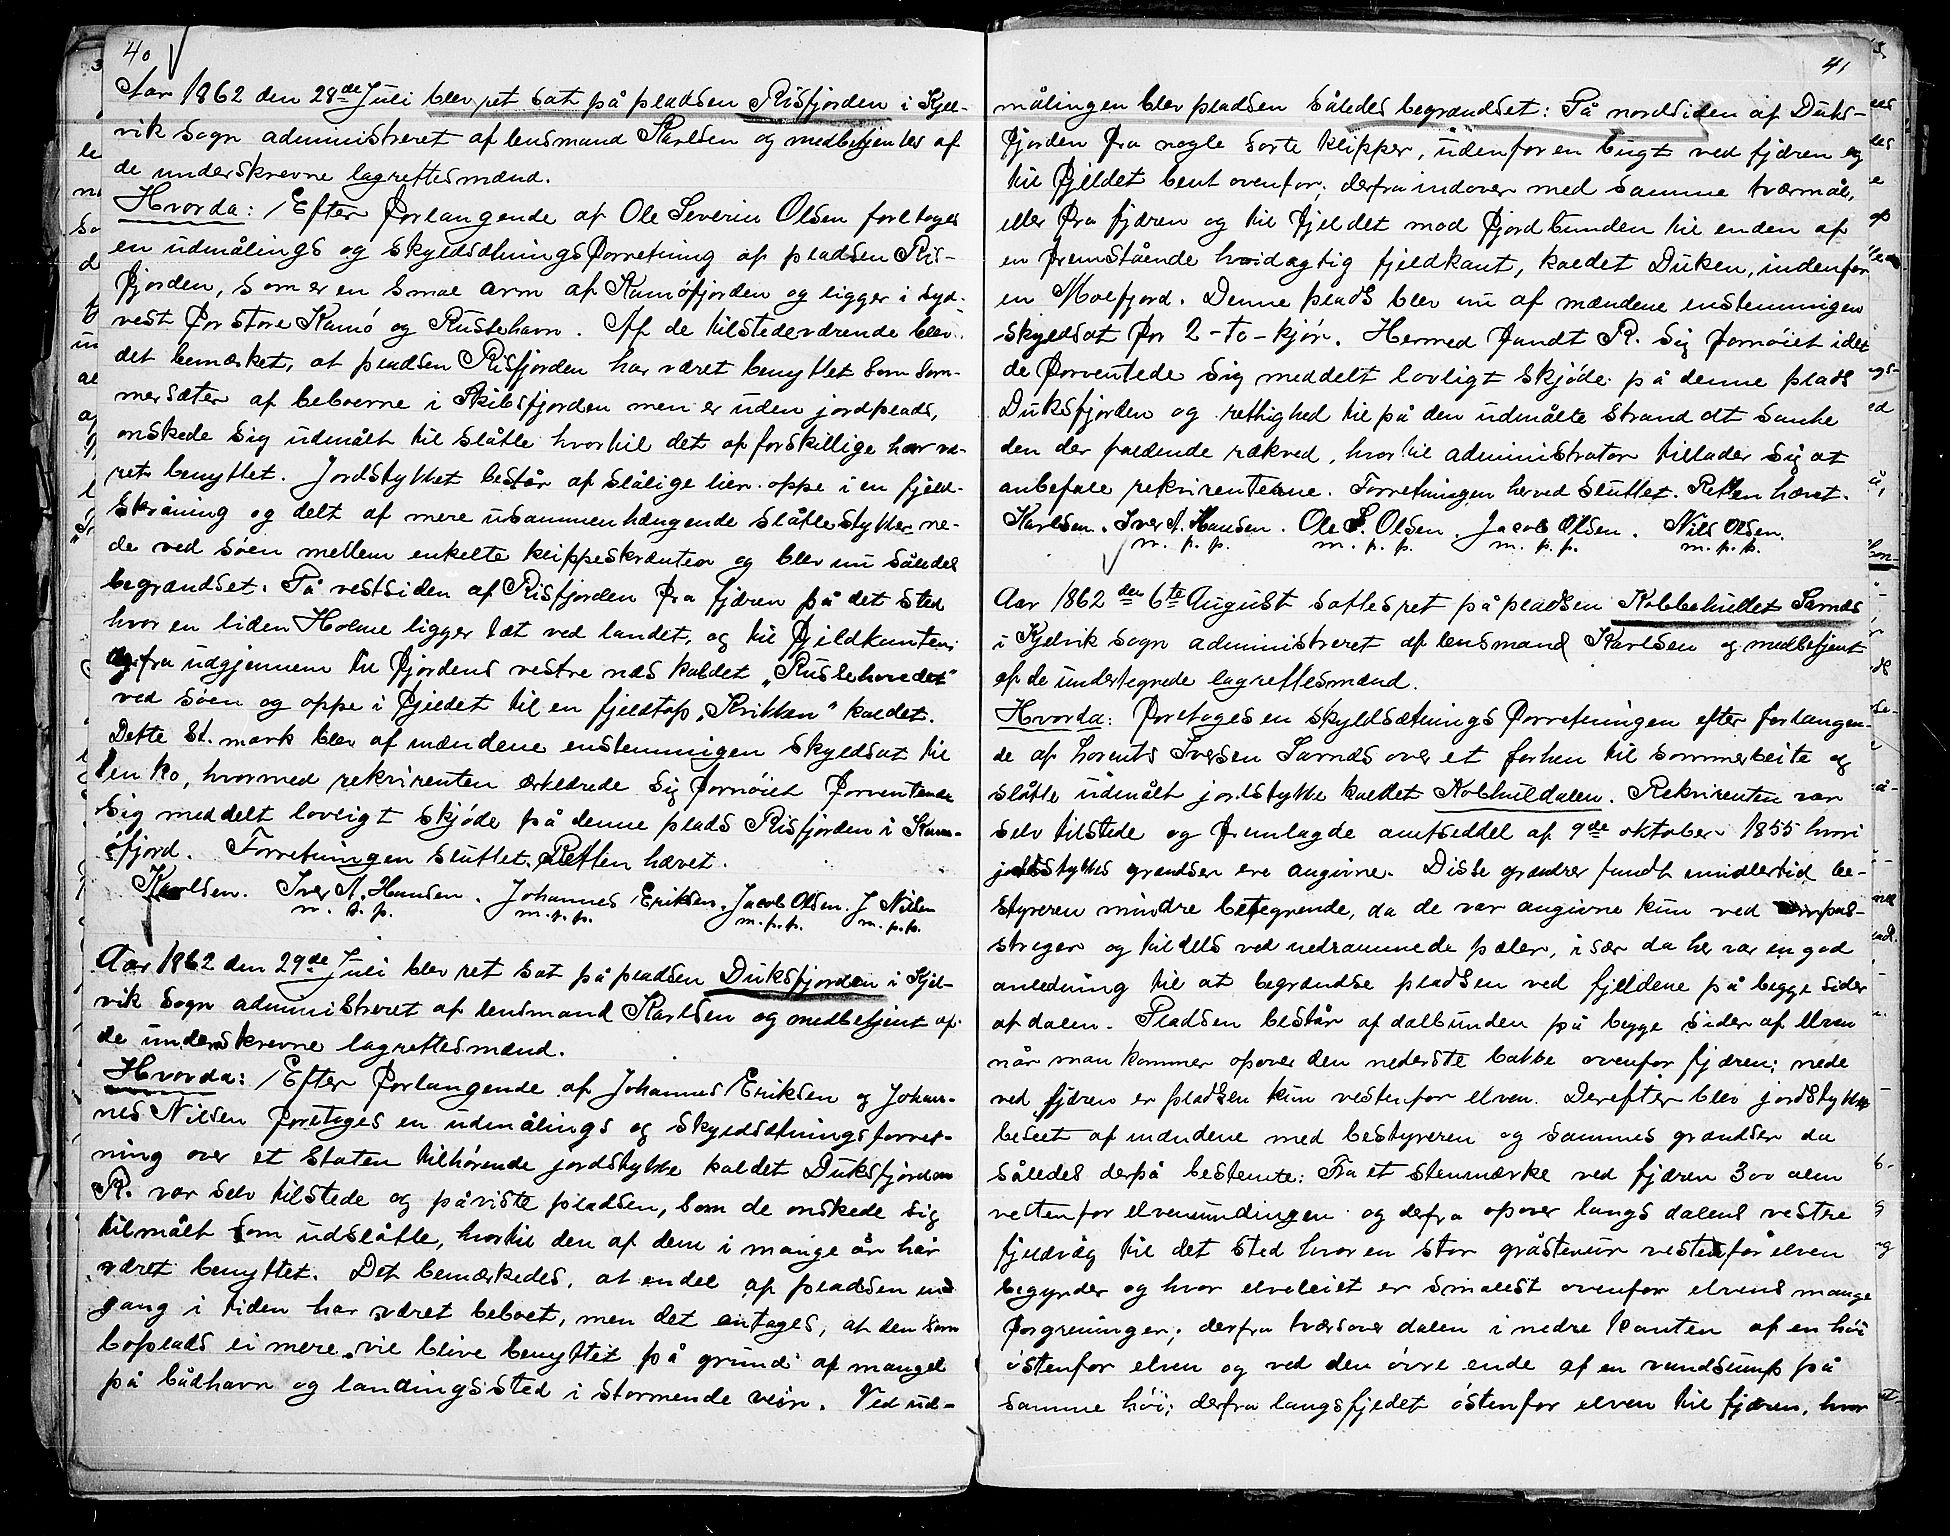 40
Aar 1862 den 28de Juli blev ret sat på pladsen Risfjorden i Kjel-
vik sogn administreret af lensmand Karlsen og medbetjentes af
de underskrevne lagrettesmænd.
Hvorda: Efter Forlangende af Ole Severin Olsen foretoges
en udmålings og skyldsætningsforretning af pladsen Ris-
fjorden, som er en smal arm af Kamøfjorden og ligger i syd-
vest for store Kamø og Russehavn. Af de tilstedeværende blev
det bemærket, at pladsen Risfjorden har været benyttet som som-
mersæter af beboerne i Skibsfjorden men er uden jordplads,
onskede sig udmålt til slåtte hvortil det af forskillige har væ-
ret benyttet. Jordstykket består af slålige lier oppe i en fjeld-
skråning og delt af mere usammenhængende slåttestykker ne-
de ved søen mellem enkelte klippeskrænter og blev nu således
begrændset: På vestsiden af Risfjorden fra fjæren på det sted
hvor en liden Holme ligger tæt ved landet, og til fjeldkanten;
derfra udgjennem til fjordens vestre næs kaldet „Russehovedet"
ved søen og oppe i fjeldet til en fjeldtop „Krikken" kaldet.
Dette St. mark blev af mændene enstemmigen skyldsat til
1 en ko, hvormed rekvirenten erklærede sig fornøiet forventende
sig meddelt lovligt skjøde på denne plads Risfjorden i Kam-
øfjord. Forretningen sluttet. Retten hævet.
Karlsen. Iver A. Hansen. Johannes Eriksen. Jacob Olsen. J Nilsen
m. p. p. m. p. p. m. p. p. m. p. p.
Aar 1862 den 29de Juli blev ret sat på pladsen Duksfjorden i Kjel-
vik sogn administreret af lensmand Karlsen og medbetjent af
de underskrevne lagrettesmænd.
Hvorda: Efter Forlangende af Johannes Eriksen og Johan-
nes Nilsen foretoges en udmålings og skyldsætningsforret-
ning over et Staten tilhørende jordstykke kaldet Duksfjorden
R. var selv tilstede og påviste pladsen, som de onskede sig
tilmålt som udslåtte, hvortil den af dem i mange år har
været benyttet. Det bemærkedes, at endel af pladsen en
gang i tiden har været beboet, men det antages, at den som
boplads ei mere vil blive benyttet på grund af mangel
på bådhavn og landingssted i stormende veir. Ved ud-
41
målingen blev pladsen således begrændset: På nordsiden af Duks-
fjorden fra nogle sorte klipper, udenfor en bugt ved fjæren og
til fjeldet bent ovenfor; derfra indover med samme tværmål,
eller fra fjæren og til fjeldet mod fjordbunden til enden af
en fremstående hvidagtig fjeldkant, kaldet Duken, indenfor
en Molfjord. Denne plads blev nu af mændene enstemmigen
skyldsat for 2-to-kjør. Hermed fandt R. sig fornøiet idet
de forventede sig meddelt lovligt skjøde på denne plads
Duksfjorden og rettighed til på den udmålte strand at sanke
den der faldende rækved, hvortil administrator tillader sig at
anbefale rekvirenterne. Forretningen herved sluttet. Retten hævet.
Karlsen. Iver A. Hansen. Ole S. Olsen. Jacob Olsen. Nils Olsen.
m. p. p. m. p. p. m. p. p. m. p. p.
Aar 1862 den 6te August sattes ret på pladsen Kobbehullet Sarnæs
i Kjelvik sogn administreret af lensmand Karlsen og medbetjent
af de undertegnede lagrettesmænd.
Hvorda: foretoges en skyldsætningsforretningen efter forlangen-
de af Lorents Iversen Sarnæs over et forhen til sommerbeite og
slåtte udmålt jordstykke kaldet Kobhuldalen. Rekvirenten var
selv tilstede og fremlagde amtseddel af 9de oktober 1855 hvori
jordstykkes grændser ere angivne. Disse grændser fandt imidlertid be-
styreren mindre betegnende, da de var angivne kun ved kompas-
streger og tildels ved nedrammede pæler, især da her var en god
anledning til at begrændse pladsen ved fjeldene på begge sider
af dalen. Pladsen består af dalbunden på begge sider af elven
når man kommer opover den nederste bakke ovenfor fjæren; nede
ved fjæren er pladsen kun vestenfor elven. Derefter blev jordstykke
beseet af mændene med bestyreren og sammes grændser da
således derpå bestemte: Fra et stenmærke ved fjæren 300 alen
vestenfor elvemundingen og defra opover langs dalens vestre
fjeldvæg til det sted hvor en stor gråstenur vestenfor elven
begynder og hvor elveleiet er smalest ovenfor elvens mange
forgreninger; derfra tværsover dalen i nedre kanten af en høi
østenfor elven og ved den øvre ende af en vandsump på
samme høi; derfra langsfjeldet østenfor elven til fjæren, hvor